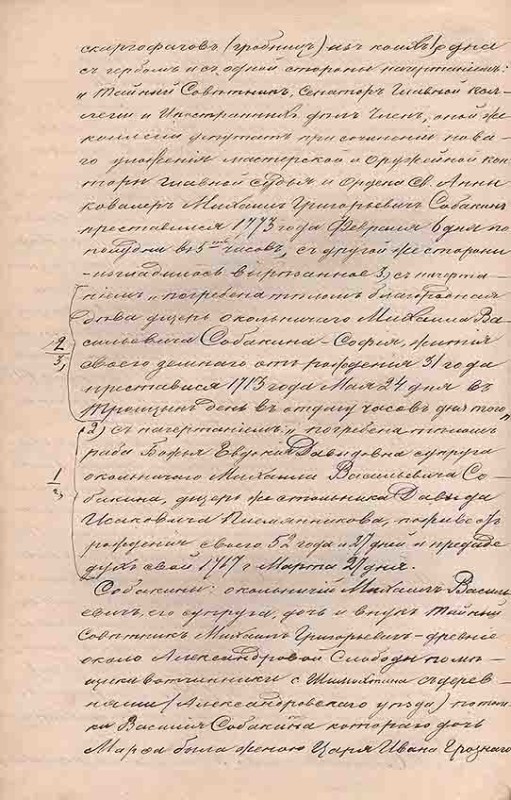 саркофаговъ (гробницъ) изъ коихъ 1) одна
съ гербомъ и съ одной стороны начертаніемъ:
„Тайный Совѣтникъ, Сенаторъ Главной кол-
легіи Иностранныхъ дѣлъ Членъ, оной же
коллегіи депутатъ при сочиненіи нова-
го уложенія мастерской и Оружейной кон-
торы Главной Судья и Ордена Св. Анны
ковалеръ Михаилъ Григорьевичъ Собакинъ
преставился 1773 года Февраля 6 дня по
полудни въ 5 часовъ, съ другой же стороны
вырѣзанное 3, съ начерта-
ніемъ „погребена тѣломъ благородная
дѣва дщерь окольничаго Михаила Ва-
сильевича Собакина София, житія
своего земнаго отъ рожденія 31 года
преставися 1713 года Мая 24 дня въ
Троицынъ день въ отдачу часовъ дня того"
2
3,
2) съ начертаніемъ „погребена тѣломъ
раба Божья Евдокия Давидовна супруга
окольничаго Михаила Васильевича Со-
бакина, дщерь же стольника Давыда
Исаковича Племянникова, поживе отъ
рожденія своего 52 года и 37 дней и предаде
духъ свой 1717 г Марта 27 дня.
1
Собакины: окольничій Михаилъ Василь
евичъ, его супруга, дочь и внукъ Тайный
Совѣтникъ Михаилъ Григорьевичъ – древніе
около Александровой Слободы помѣ-
щики вотчинники с Жилохтина съ дерев-
нями (Александровскаго уѣзда) потом-
ки Василія Собакина котораго дочь
Марфа была женою Царя Ивана Грознаго